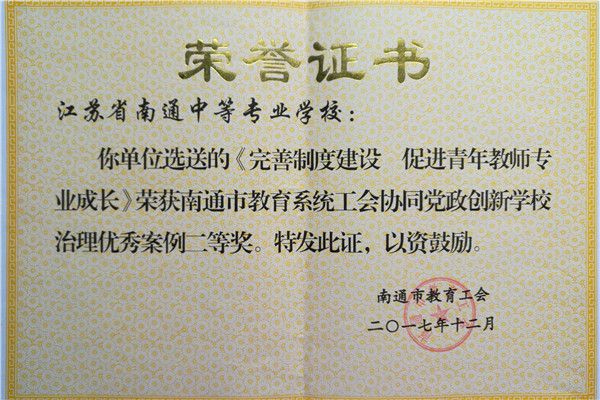 荣誉证书
江苏省南通中等专业学校：
你单位选送的《完善制度建设 促进青年教师专
业成长》荣获南通市教育系统工会协同党政创新学校
治理优秀案例二等奖。特发此证，以资鼓励。
南通市教育工会
二〇一七年十二月